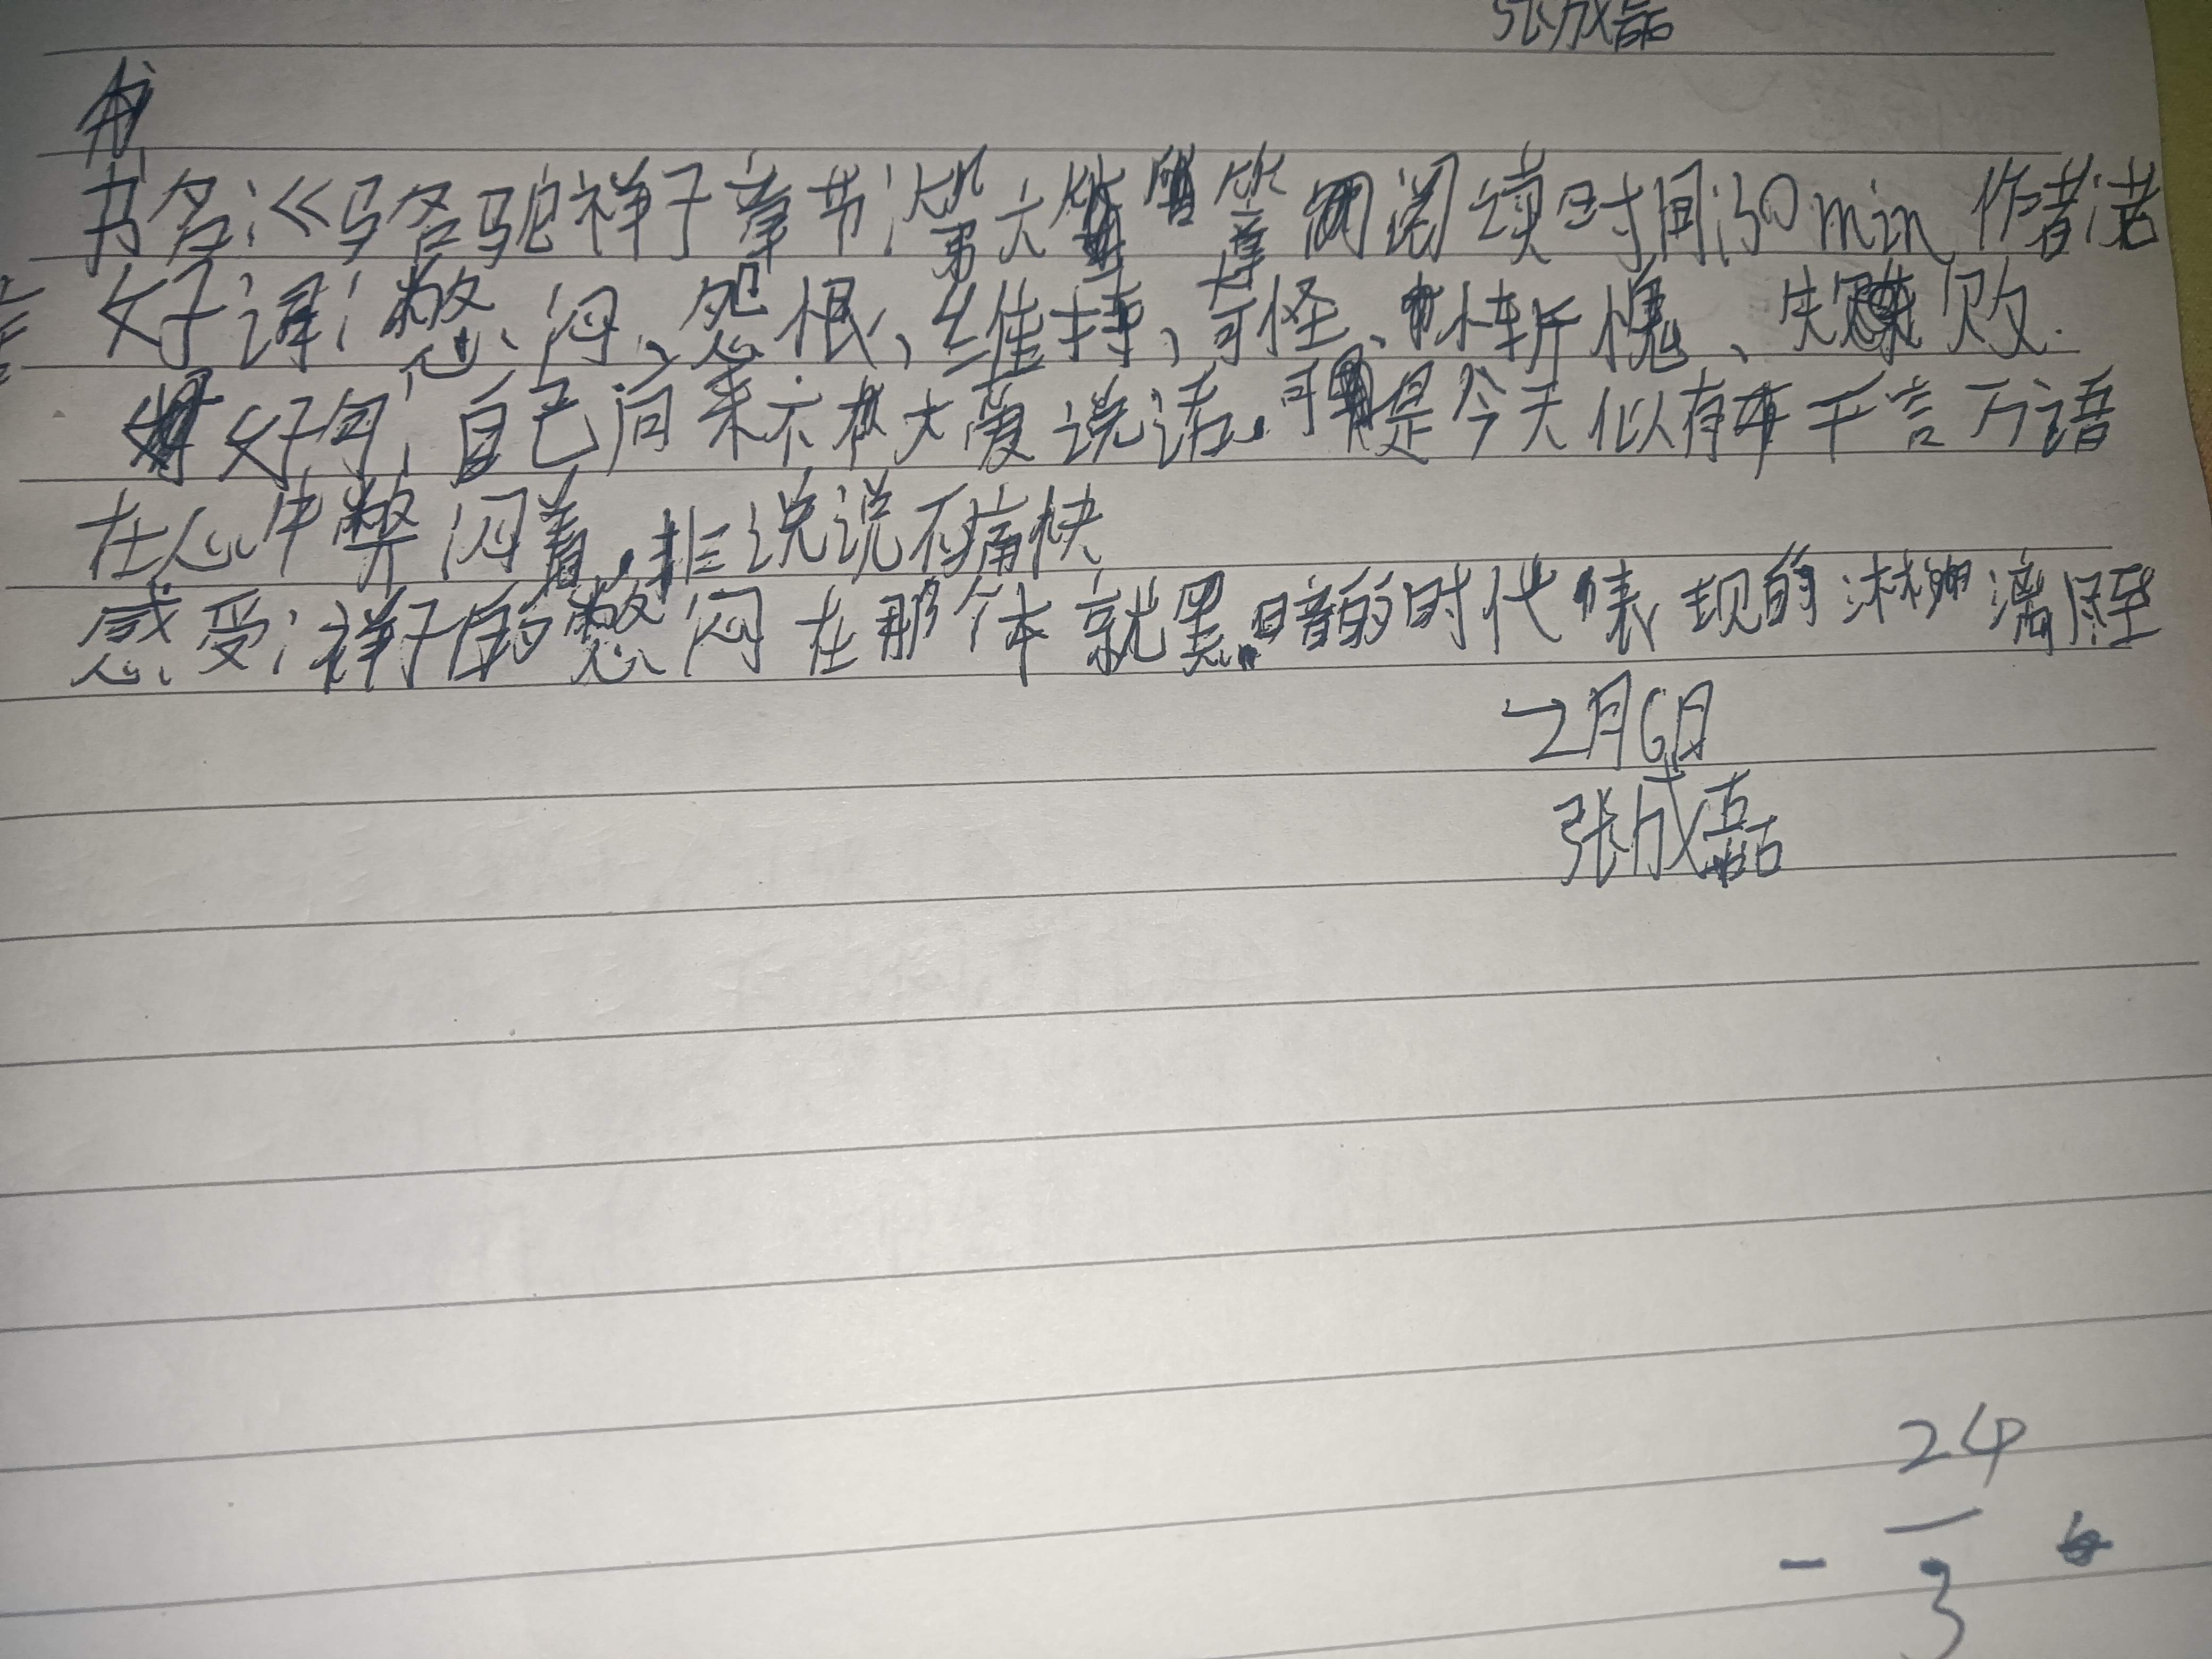 张成磊
书
书名:《骆驼祥子章节:第六章阅读时间:30min 作者:老
好词:憋闷、怨恨、维持、奇怪、惭愧、失败.
好句:自己向来不大爱说话.可是今天似有千言万语
在心中憋闷着.非说说不痛快
感受:祥子的憋闷在那个本就黑暗的时代表现的淋漓尽至
2月6日
张成磊
24
3